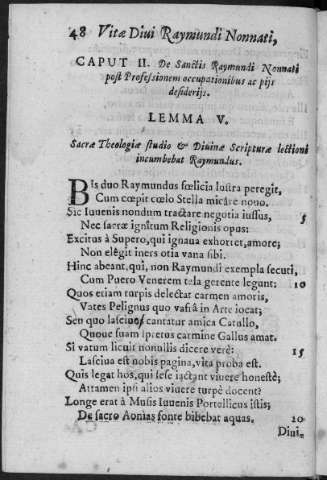 48 Vitæ Diui Raymundi Nonnati,
CAPUT II. De Sanctis Raymundi Nonnati
post Professionem occupationibus ac pijs
desiderijs.
LEMMA V.
Sacræ Theologiæ studio & Diuinæ Scripturæ lectioni
incumbebat Raymundus.
BIs duo Raymundus fœlicia lustra peregit,
Cum cœpit cœlo Stella micare nouo.
Sic Iuuenis nondum tractare negotia iussus, 5
Nec sacræ ignitum Religionis opus:
Excitus à Supero, qui ignaua exhorret, amore;
Non elêgit iners otia vana sibi.
Hinc abeant, qui, non Raymundi exempla secuti,
Cum Puero Venerem tela gerente legunt: 10
Quos etiam turpis delectat carmen amoris,
Vates Pelignus quo vafra in Arte iocat;
Seu quo lasciuo cantatur amica Catullo,
Quoue suam spretus carmine Gallus amat.
Si vatum licuit nonullis dicere verè: 15
Lasciua est nobis pagina, vita proba est.
Quis legat hos, qui sese iactant viuere honestè;
Attamen ipsi alios viuere turpè docent?
Longe erat à Musis Iuuenis Portellicus istis;
De sacro Aonias fonte bibebat aquas. 20
Diui-